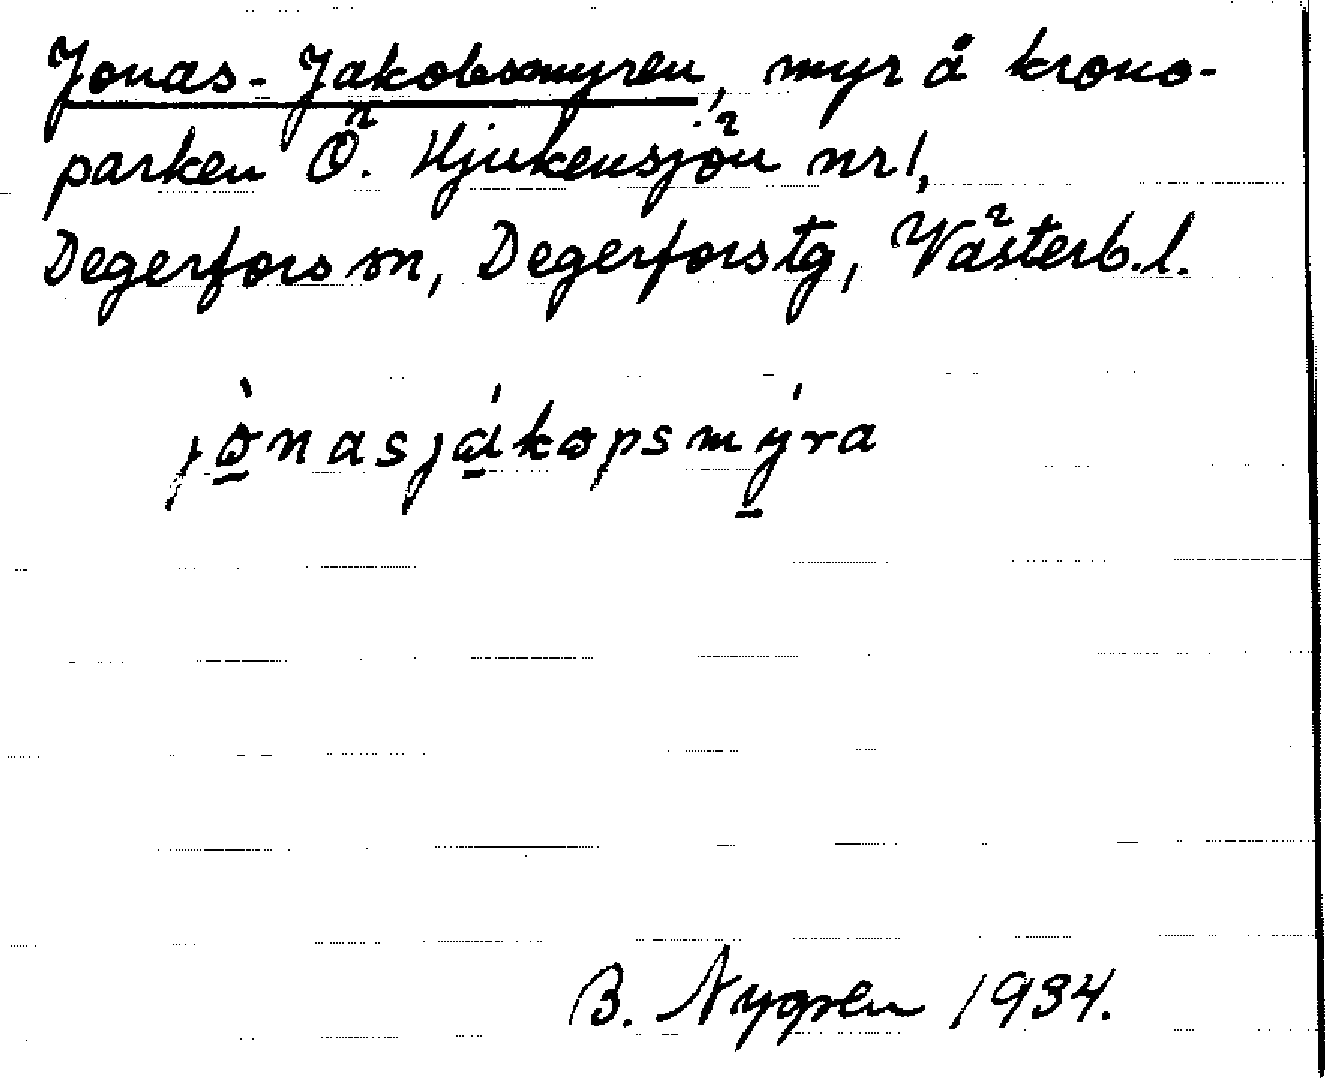 Jonas-Jakobsmyren, myr å krono-
parken Ö. Hjukensjön nr 1,
Degerfors sn, Degerfors tg, Västerb. l.
jònasjákopsmýra
B. Nygren 1934.